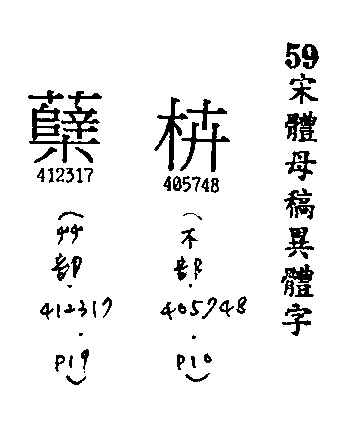 59宋體母稿異體字
枿
405748
(木部.405748.p10)
蘖
412317
(艸部.412317.p19)